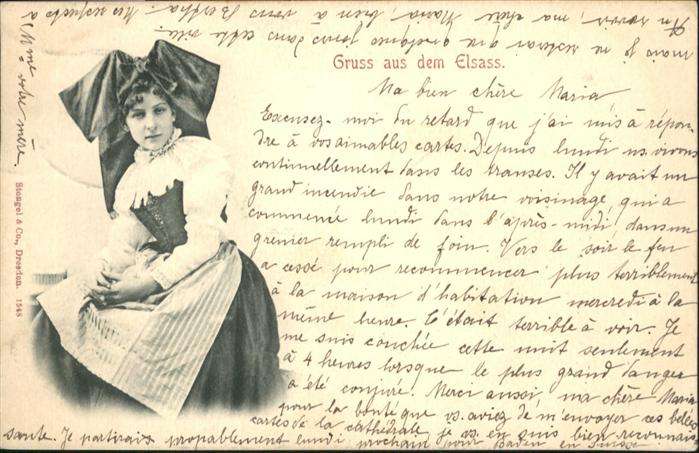 Gruss aus dem Elsass.
Ma bien chère Maria
Excusez-moi du retard que j'ai mis à répon-
dre à vos aimables cartes. Depuis lundi ns. vivons
continuellement dans les transes. Il y avait un
grand incendie dans notre voisinage, qui a
commencé lundi dans l'après-midi, dans un
grenier rempli de foin. Vers le soir le feu
a cessé pour recommencer plus terriblement
à la maison d'habitation mercredi à la
même heure. C'était terrible à voir. Je
me suis couchée cette nuit seulement
à 4 heures lorsque le plus grand danger
a été conjuré. Merci aussi, ma chère Maria
pour la bonté que vs. aviez de m'envoyer ces belles
cartes de la cathédrale, je vs. en suis bien reconnais-
sante. Je partirais propablement lundi prochain pour Baden en Suisse
mais je ne resterai que quelques jours dans cette ville.
Au revoir, ma chère Maria, bien à vous Bertha. Mes respects à
Mme votre mère.
Stengel & Co., Dresden. 1548